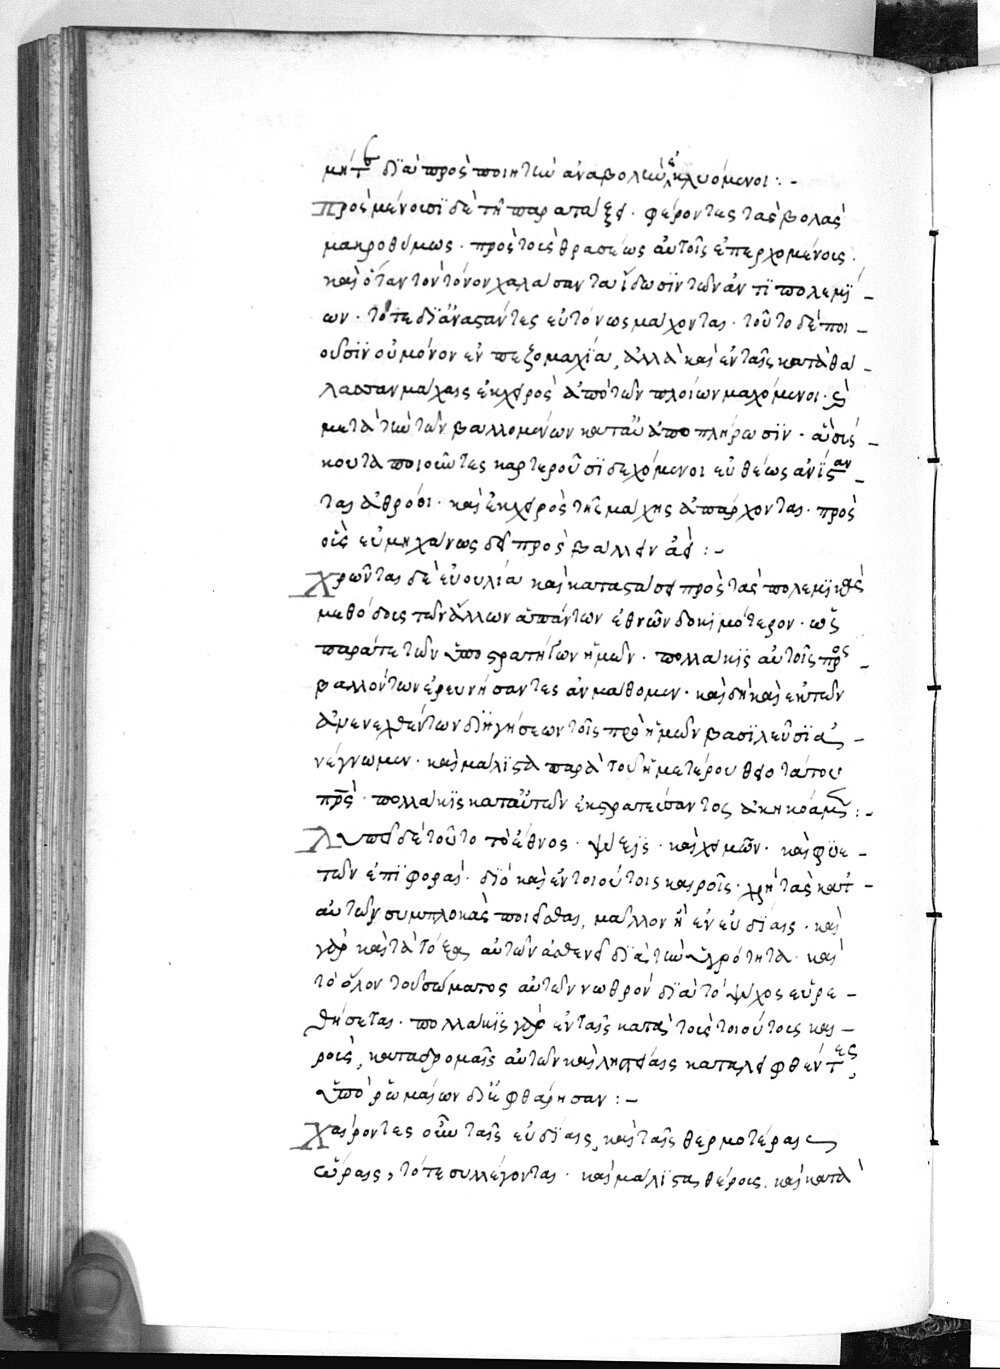 μήτε διὰ πρὸς ποιητὴν ἀναβολὴν ἐκλυόμενοι :-
Προσμένουσι δὲ τῇ παρατάξει. φέροντες τὰς βολὰς
μακροθύμως. πρὸς τοὺς θρασέως αὐτοῖς ἐπερχομένους.
καὶ ὅταν τὸν τόνον χαλάσαντα ἴδωσιν τῶν ἀντιπολεμί-
ων. τότε διἀναστάντες εὐτόνως μάχονται. τοῦτο δὲ ποι-
οῦσιν οὐ μόνον ἐν πεζομαχία, ἀλλὰ καὶ ἐν ταῖς κατὰ θά-
λασσαν μάχαις ἐκχειρὸς ἀπὸ τῶν πλοίων μαχόμενοι. καὶ
μετὰ τὴν τῶν βαλλομένων κατ' αὐ ἀποπλήρωσιν. ἀσπίς-
κουτα ποιοῦντες καρτεροῦσι δεχόμενοι εὐθέως ἀνίσταν-
ται ἀθρόοι. καὶ ἐκχειρὸς τῆς μάχης ἀπάρχονται. πρὸς
οὓς εὐμηχάνως δεῖ προσβάλλειν ἀεί :-
Χρῶνται δὲ εὐουλία καὶ καταστάσει πρὸς τὰς πολεμικὰς
μεθόδους τῶν ἄλλων ἁπάντων ἐθνῶν δοκιμότερον. ὡς
παρά τε τῶν ὑποστρατήγων ἡμῶν. πολλάκις αὐτοῖς προς-
βαλλόντων ἐρευνήσαντες ἀνμάθομεν. καὶ δὴ καὶ ἐκ τῶν
ἀμενελθέντων διηγήσεων τοῖς πρὸ ἡμῶν βασιλεῦσι ἀ-
νέγνωμεν. καὶ μάλιστα παρὰ τοῦ ἡμετέρου θειοτάτου
πρς. πολλάκις κατ' αὐτῶν ἐκστρατεύσαντος ἀκηκόαμεν :-
Λυπεῖ δὲ τοῦτο τὸ ἔθνος. ψύξις. καὶ χειμῶν. καὶ ὑε-
τῶν ἐπιφορά. διὸ καὶ ἐν τοιούτοις καιροῖς. χρὴ τὰς κατ'-
αὐτῶν συμπλοκὰς ποιεῖσθαι, μᾶλλον ἢ ἐν εὐδίαις. καὶ
γὰρ καὶ τὰ τόξα αὐτῶν ἀσθενεῖ διὰ τὴν ὑγρότητα. καὶ
τὸ ὅλον τοῦ σώματος αὐτῶν νωθρὸν διὰ τὸ ψύχος εὑρε-
θήσεται. πολλάκις γὰρ ἐν ταῖς κατὰ τοὺς τοιούτους και-
ροὺς, καταδρομαῖς αὐτῶν καὶ ληστείαις καταλειφθέντες,
ὑπὸ ῥωμαίων διεφθάρησαν :-
Χαίροντες οὖν ταῖς εὐδίαις, καὶ ταῖς θερμοτέραις
ὥραις, τότε συλλέγονται. καὶ μάλιστα θέρους. καὶ κατὰ